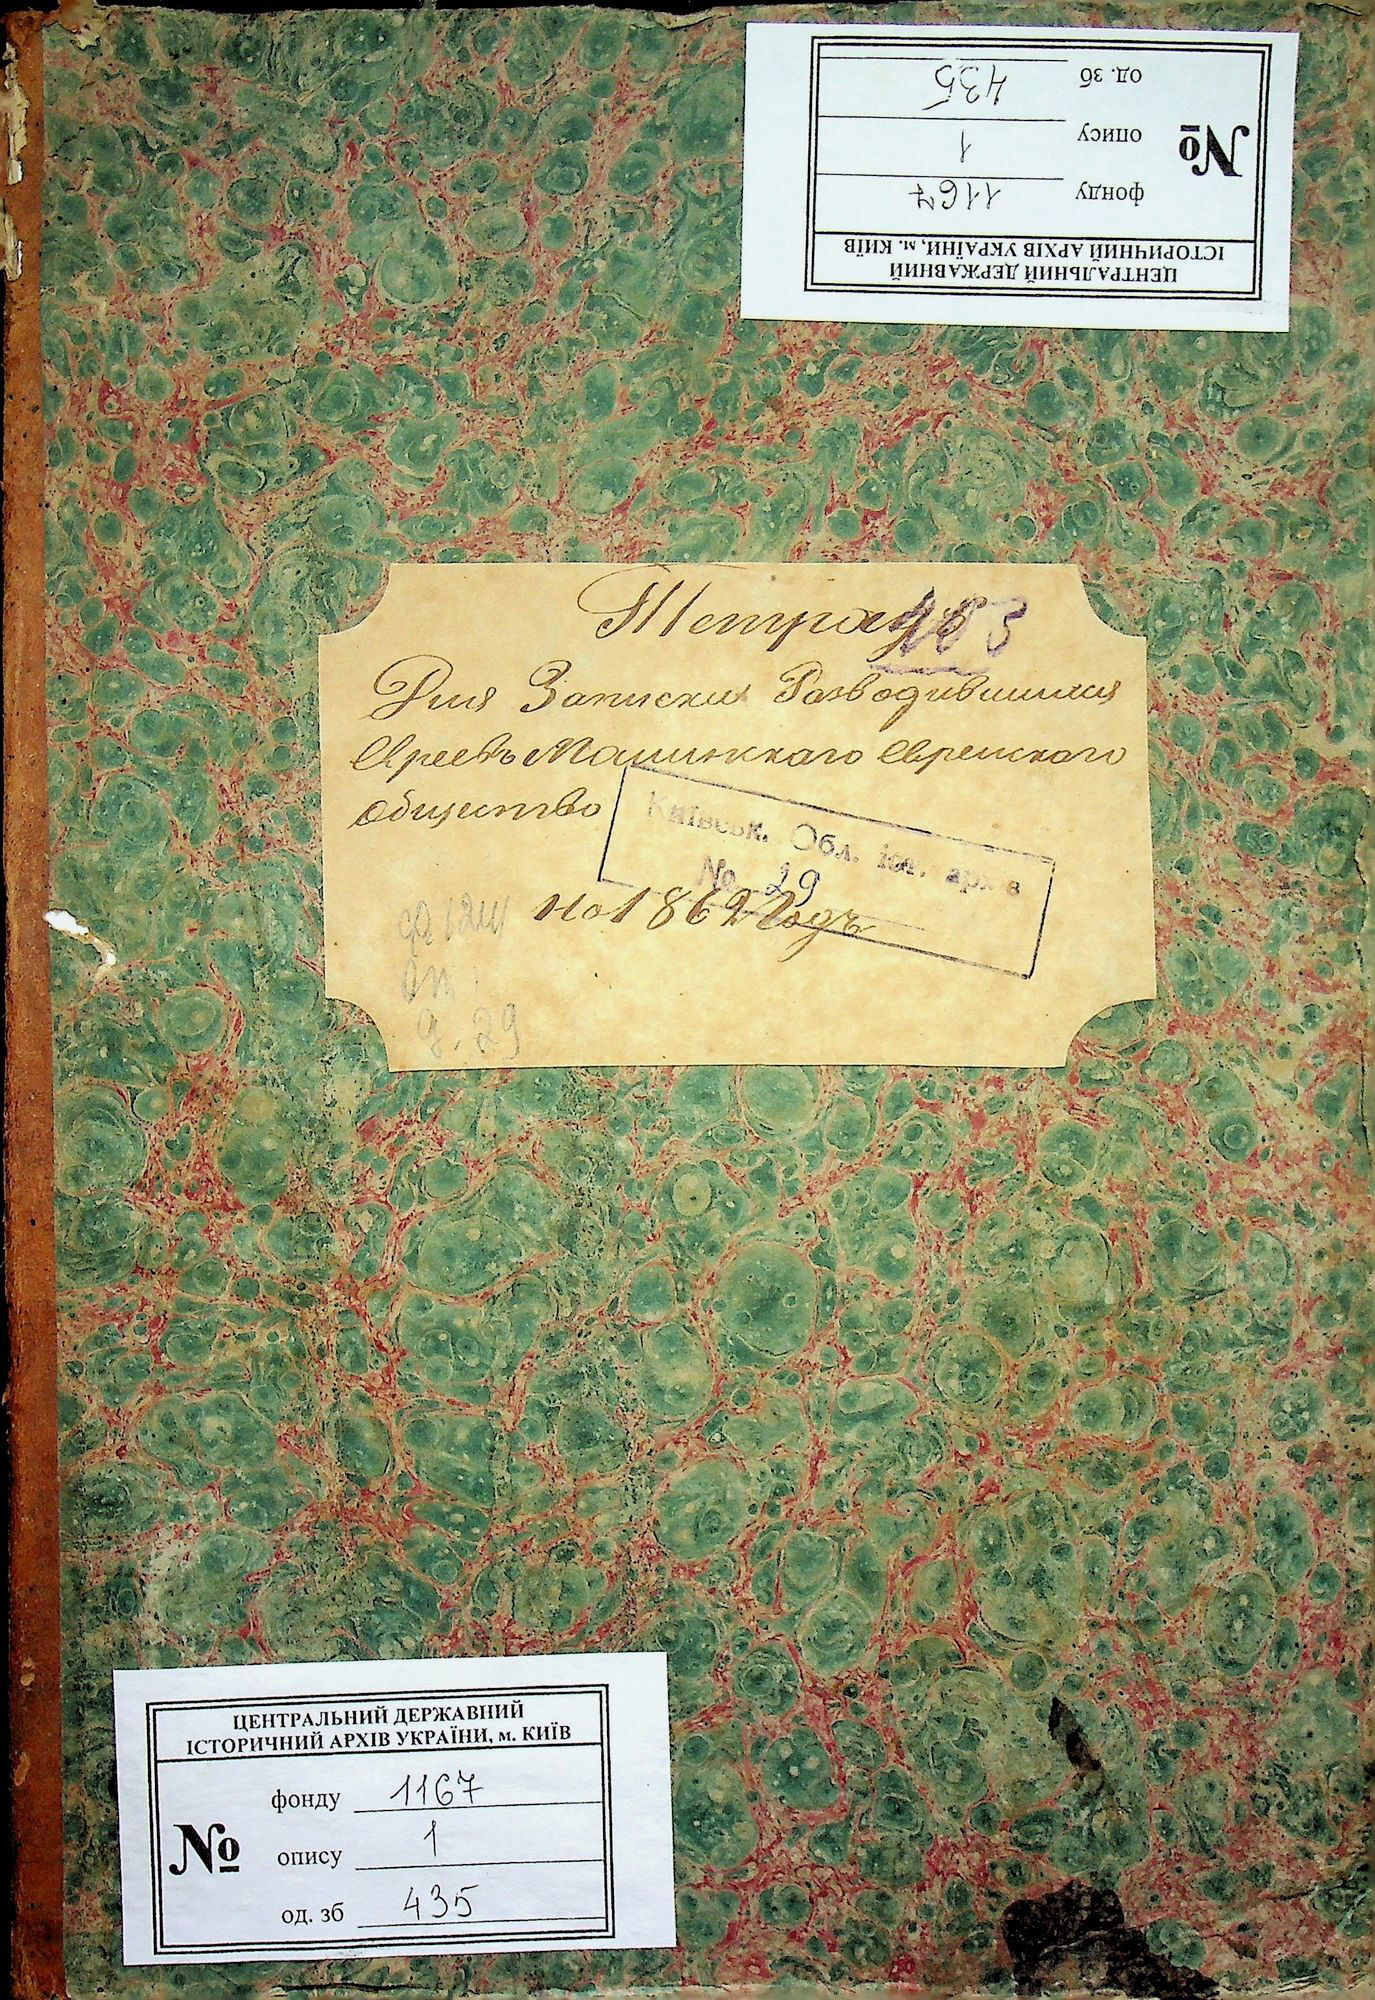 од. зб 435
опису 1
фонду 1167
№
ЦЕНТРАЛЬНИЙ ДЕРЖАВНИЙ
ІСТОРИЧНИЙ АРХІВ УКРАЇНИ, м. КИЇВ
Тетрадь
Для Записки Разводившихся
Евреевъ Машинскаго Еврейского
Общество
на 1862 Годъ
Київськ. Обл. іст. архів
№ 29
оп.
д. 29
ЦЕНТРАЛЬНИЙ ДЕРЖАВНИЙ
ІСТОРИЧНИЙ АРХІВ УКРАЇНИ, м. КИЇВ
фонду 1167
№
опису 1
од. зб 435